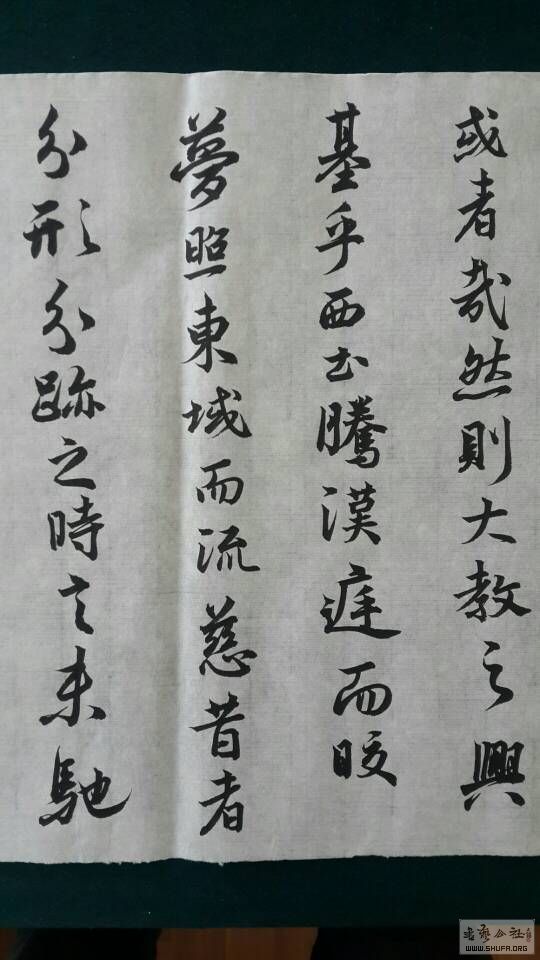 或者哉然則大教之興
基乎西土騰漢庭而皎
夢照東域而流慈昔者
分形分跡之時言未馳
书艺公社
WWW.SHUFA.ORG